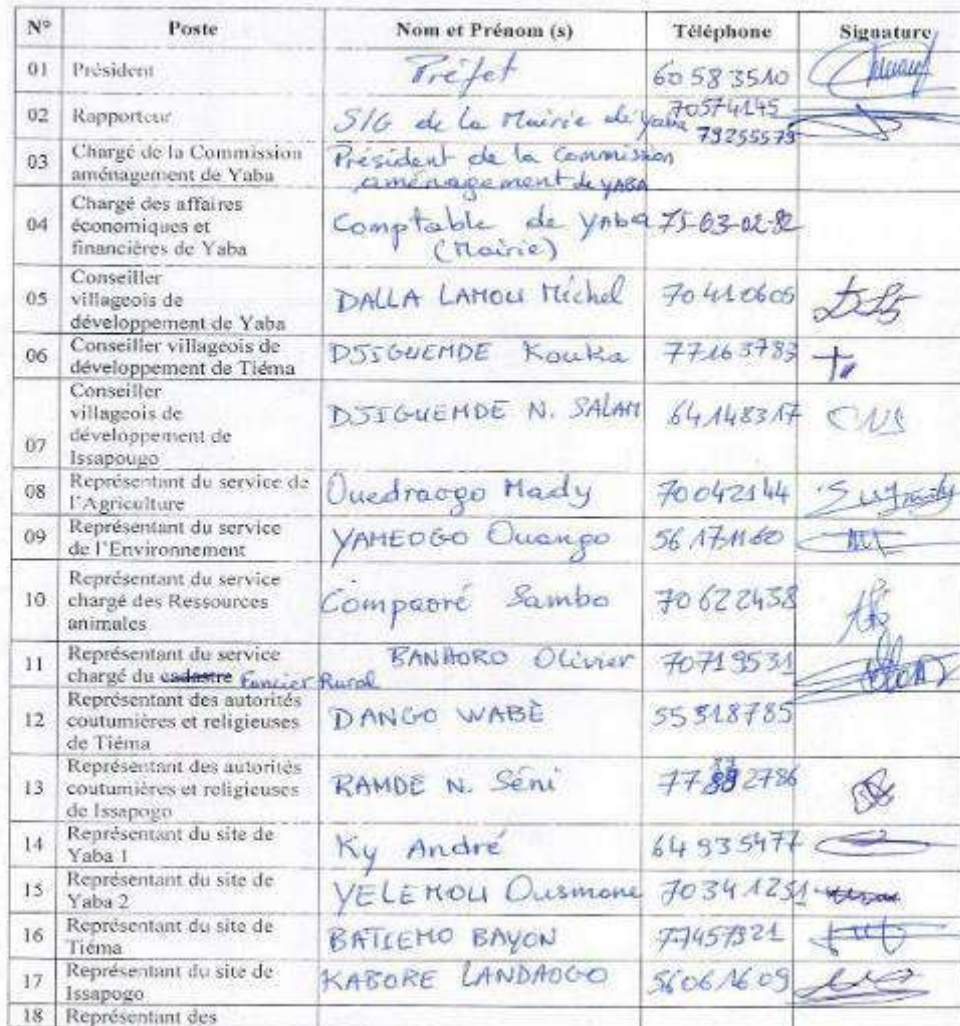 N° Poste Nom et Prénom (s) Téléphone Signature
01 Président Préfet 60 58 35 10
02 Rapporteur S/G de la Mairie de Yaba 70574145
79255579
03 Chargé de la Commission
aménagement de Yaba
Président de la Commission
aménagement de YABA
04 Chargé des affaires
économiques et
financières de Yaba
Comptable de Yaba
(Mairie)
75-63-02-82
05 Conseiller
villageois de
développement de Yaba
DALLA LAMOU Michel 70410605
06 Conseiller villageois de
développement de Tiéma
DJIGUEMDE Kouka 77163783
07 Conseiller
villageois de
développement de
Issapougo
DJIGUEMDE N. SALAM 64148317
08 Représentant du service de
l'Agriculture
Ouedraogo Mady 70042144
09 Représentant du service
de l'Environnement
YAMEOGO Ouango 56171160
10 Représentant du service
chargé des Ressources
animales
Compaoré Sambo 70622438
11 Représentant du service
chargé du cadastre Foncier Rural
BANHORO Olivier 70719531
12 Représentant des autorités
coutumières et religieuses
de Tiéma
DANGO WABE 55318785
13 Représentant des autorités
coutumières et religieuses
de Issapogo
RAMDE N. Séni 77 2786
14 Représentant du site de
Yaba 1
Ky André 64935477
15 Représentant du site de
Yaba 2
YELEMOU Ousmane 70341251
16 Représentant du site de
Tiéma
BATIEMO BAYON 77457921
17 Représentant du site de
Issapogo
KABORE LANDAOGO 56061609
18 Représentant des